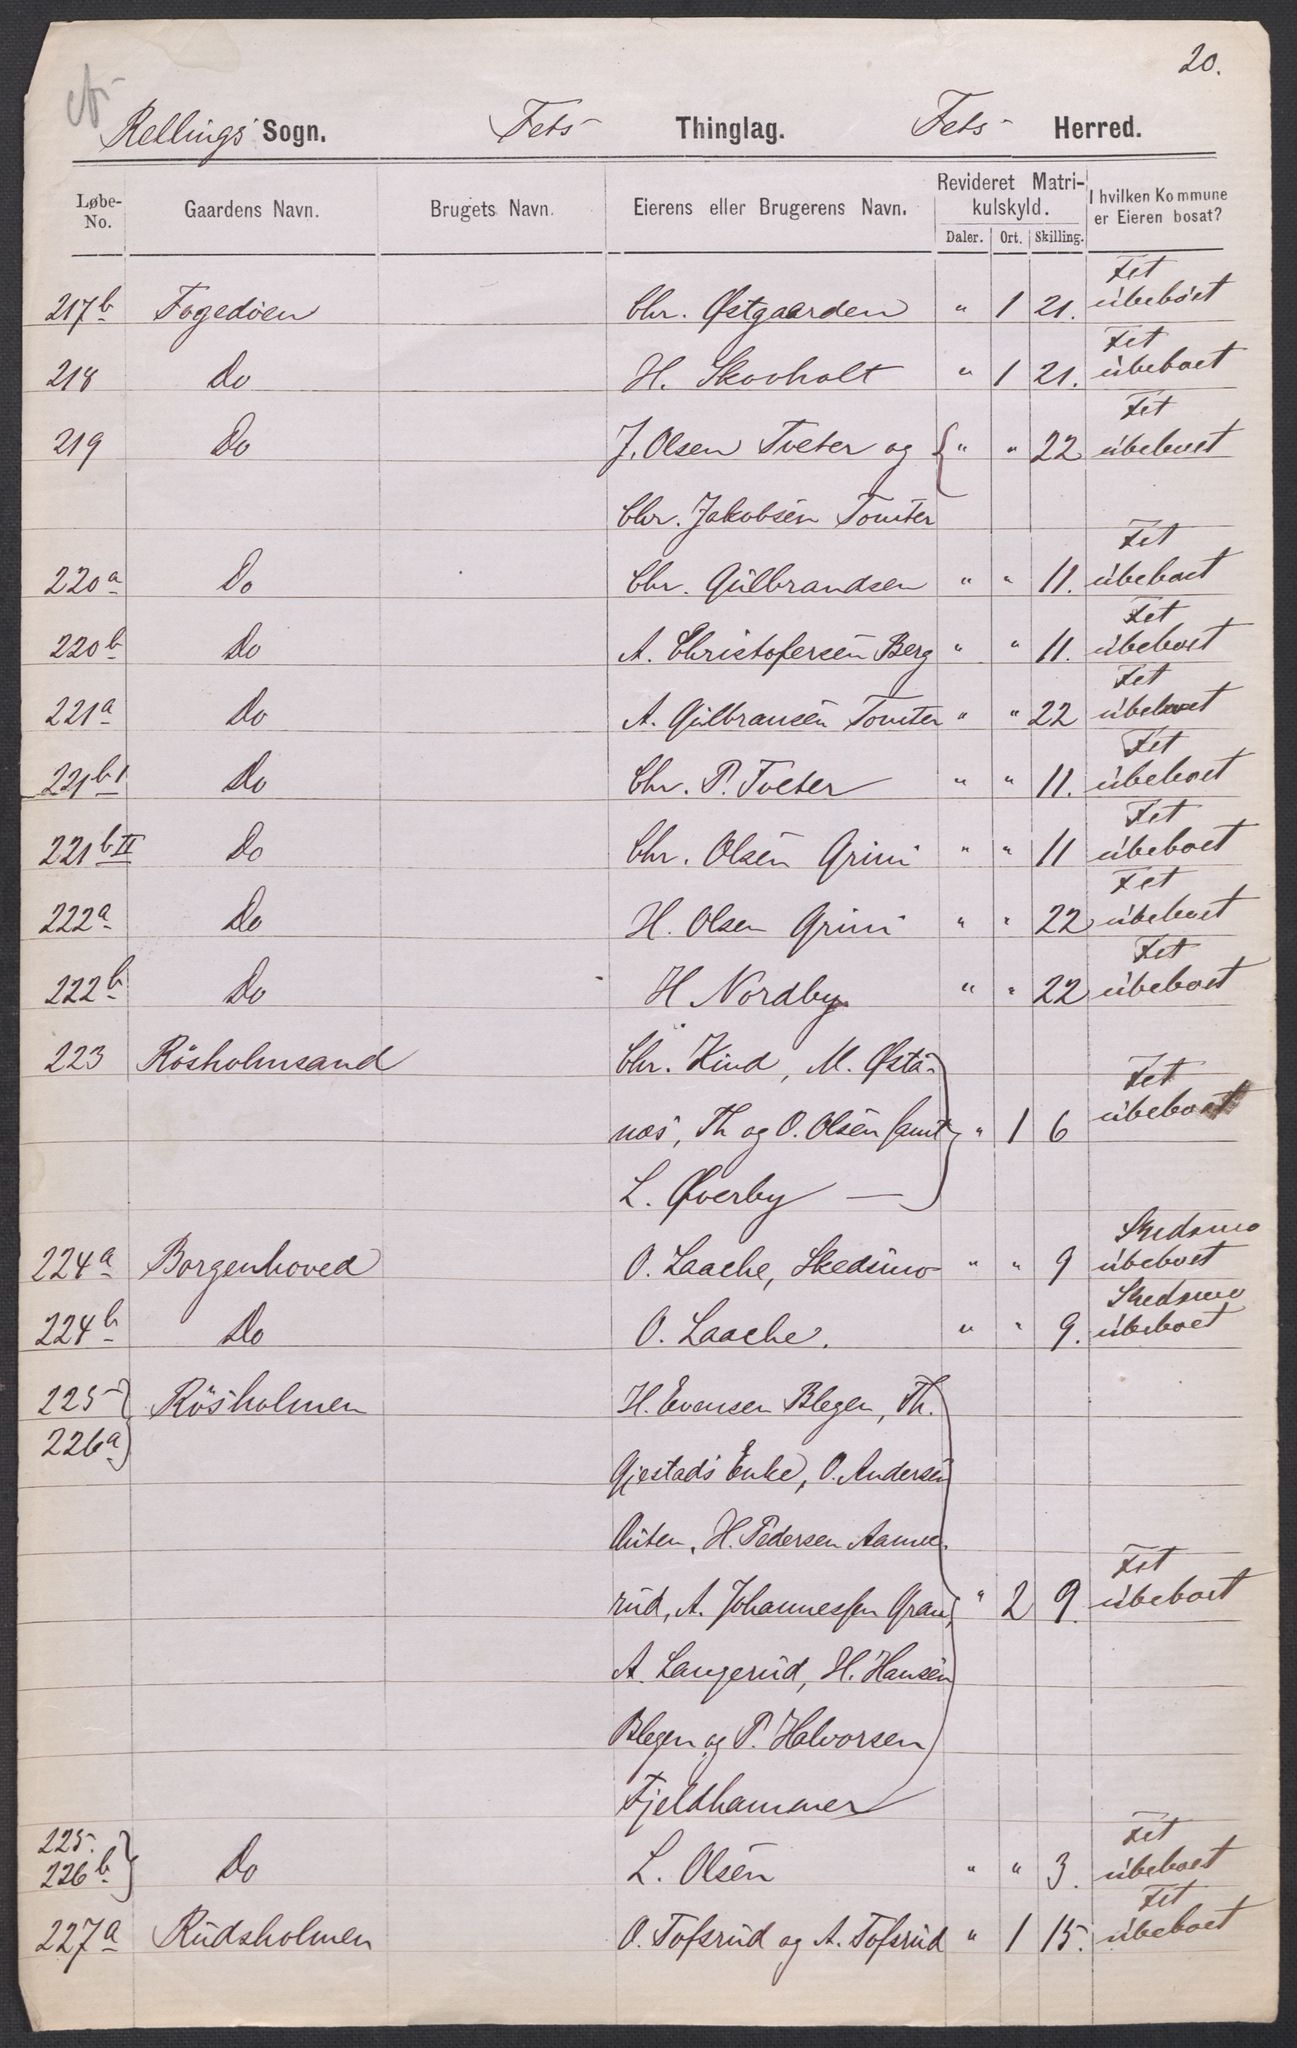 20.
Rellings Sogn. Fets Thinglag. Fets Herred.
Løbe-No. Gaardens Navn. Brugets Navn. Eierens eller Brugerens Navn. Revideret Matrikulskyld. Daler. Ort. Skilling. I hvilken Kommune er Eieren bosat?
217b Fogedöen Chr. Østgaarden " 1 21. Fet ubeboet
218 Do H. Skovholt " 1 21. Fet ubeboet
219 Do J. Olsen Tveter og { " " 22 Fet ubeboet
Chr. Jakobsen Tomter
220a Do Chr. Gulbrandsen " " 11. Fet ubeboet
220b Do A. Christofersen Berg " " 11. Fet ubeboet
221a Do A. Gulbransen Tomter " " 22 Fet ubeboet
221b I Do Chr. P. Tveter " " 11. Fet ubeboet
221b II Do Chr. Olsen Grini " " 11 Fet ubeboet
222a Do H. Olsen Grini " " 22 Fet ubeboet
222b Do H Nordby " " 22 Fet ubeboet
223 Rösholmsand Chr. Kind, M. Østa-
nes, Th og O. Olsen samt " 1 6 Fet ubeboet
L. Øverby —
224a Borgenhoved O. Laache, Skedsmo " " 9 Skedsmo ubeboet
224b Do O. Laache. " " 9. Skedsmo ubeboet
225 Rösholmen H. Evensen Blegen, Th.
226a
Gjestads Enke, O. Andersen
H. Pedersen Aamod-
rud, A. Johannessen Gran, " 2 9. Fet ubeboet
A. Langerud, H. Hansen
Blegen og P. Halvorsen
Fjeldhammer
225.
226b } Do L. Olsen " " 3. Fet ubeboet
227a Rudsholmen O. Tofsrud og A. Tofsrud " 1 15. Fet ubeboet